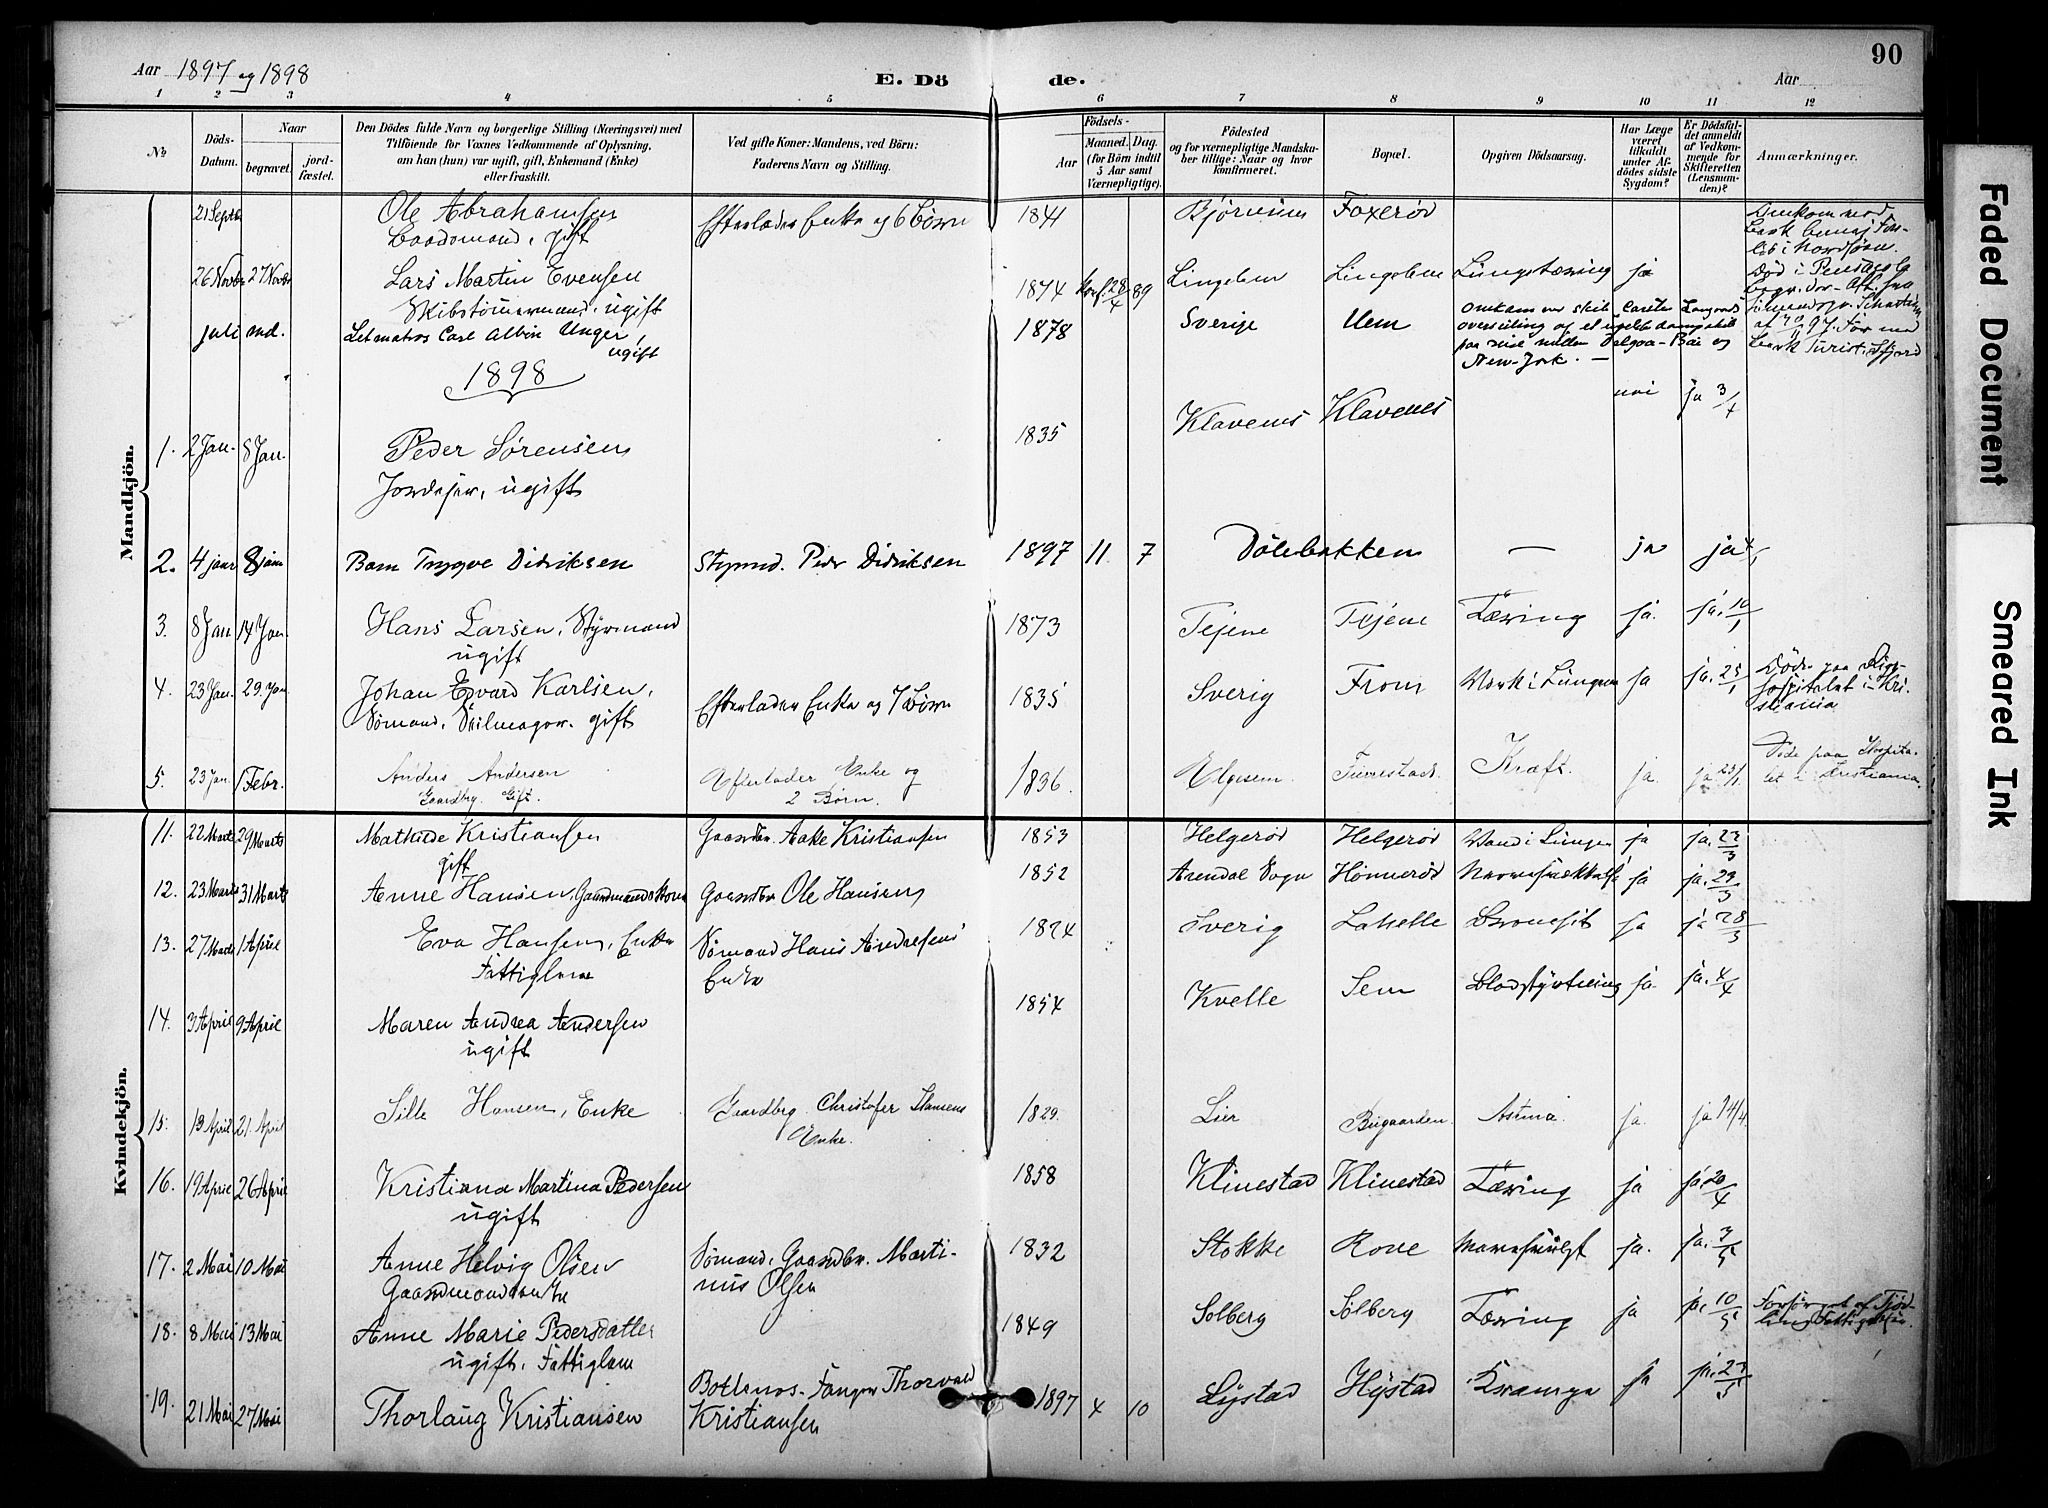 90
Aar 1897 og 1898
E. Dö de.
Aar
1 2 3 4 5 6 7 8 9 10 11 12
No
Döds-Datum.
Naar
begravet.
jord-fæstet.
Den Dödes fulde Navn og borgerlige Stilling (Næringsvei) med
Tilföiende for Voxnes Vedkommende af Oplysning,
om han (hun) var ugift, gift, Enkemand (Enke)
eller fraskilt.
Ved gifte Koner: Mandens, ved Börn:
Faderens Navn og Stilling.
Födsels-
Aar
Maaned. Dag.
(for Börn indtil
5 Aar samt
Værnepligtige).
Födested
og for værnepligtige Mandska-
ber tillige: Naar og hvor
konfirmeret.
Bopæl.
Opgiven Dödsaarsag.
Har Læge
været
tilkaldt
under Af-
dödes sidste
Sygdom?
Er Dödsfal-
det anmeldt
af Vedkom-
mende for
Skifteretten
(Lensman-
den)?
Anmærkninger.
Mandkjön.
21 Septb. Ole Abrahamsen Efterlader Enke og 6 Børn 1841 Bjørnum Foxerød
Baadsmand, gift
26 Novbr 27 Novbr Lars Martin Evensen 1874 konf. 28/4 89 Lingelem Lingelem Lungetæring ja
Skibstømmermand, ugift
juli md. Letmatros Carl Albin Unger, ugift 1878 Sverige Vem
New-York. —
1898
1. 2 Jan. 8 Jan. Peder Sørensen 1835 Klavenes Klavenes nei ja 3/1
Jordejer, ugift
2. 4 janr 8 janr Barn Trygve Didriksen Styrmd. Peder Didriksen 1897 11 7 Dølebakken — ja ja
3. 8 Jan 14 Jan. Hans Larsen, Styrmand 1873 Tejene Tejene Tæring ja. ja. 10/1
ugift
4. 23 Jan. 29. Jan Johan Edvard Karlsen, Efterlader Enke og 7 Børn 1835 Sverig From ja ja. 25/1 Døde paa Rigs-
Sømand, Seilmager. gift hospitalet i Kri-
stiania
5. 23 Jan. 1 Febr. Anders Andersen Efterlader Enke og 1836. Elgesem Kræft. ja. ja 25/1. Døde paa Hospita-
Gaardbrg. Gift. 2 Børn. let i Kristiania.
Kvindekjön.
11. 22 Marts 29 Marts Mathilde Kristiansen Gaardbr. Aake Kristiansen 1853 Helgerød Helgerød Vand i Lungen ja ja. 23/3
gift
12. 23 Marts 31 Marts Anne Hansen, Gaardmandskone Gaardbr Ole Hansen 1852 Arendal Sogn Hønnerød ja ja. 29/3
13. 27 Marts 1 April Eva Hansen, Enke Sømand Hans Andresens 1824 Sverig Lahelle Bronchit ja ja 28/3
Fattiglem Enke
14. 3 April 9 April Maren Andrea Andersen 1854 Kvelle Sem Blodstyrtning ja ja. 4/4
ugift
15. 13 April 21. April Sille Hansen, Enke Gaardbrg. Christofer Hansens 1829. Lier Bugaarden. Astma ja. ja 14/4.
Enke.
16. 19 April 26 April Kristiana Martina Pedersen 1858 Klinestad Klinestad Tæring ja ja 20/4
ugift
17. 2 Mai 10 Mai Anne Helvig Olsen Sømand, Gaardbr. Marti- 1832 Stokke Rove Mavesvulst ja. ja. 3/5
Gaardmandsenke nus Olsen
18. 8 Mai 13 Mai Anne Marie Pedersdatter 1849 Solberg Solberg Tæring ja ja. 10/5
ugift, Fattiglem
19. 21 Mai 27 Mai Thorlaug Kristiansen Bottlenos-Fanger Thorvald 1897 4 10 Hystad Krampe ja ja. 23/5
Kristiansen
Faded Document
Smeared Ink